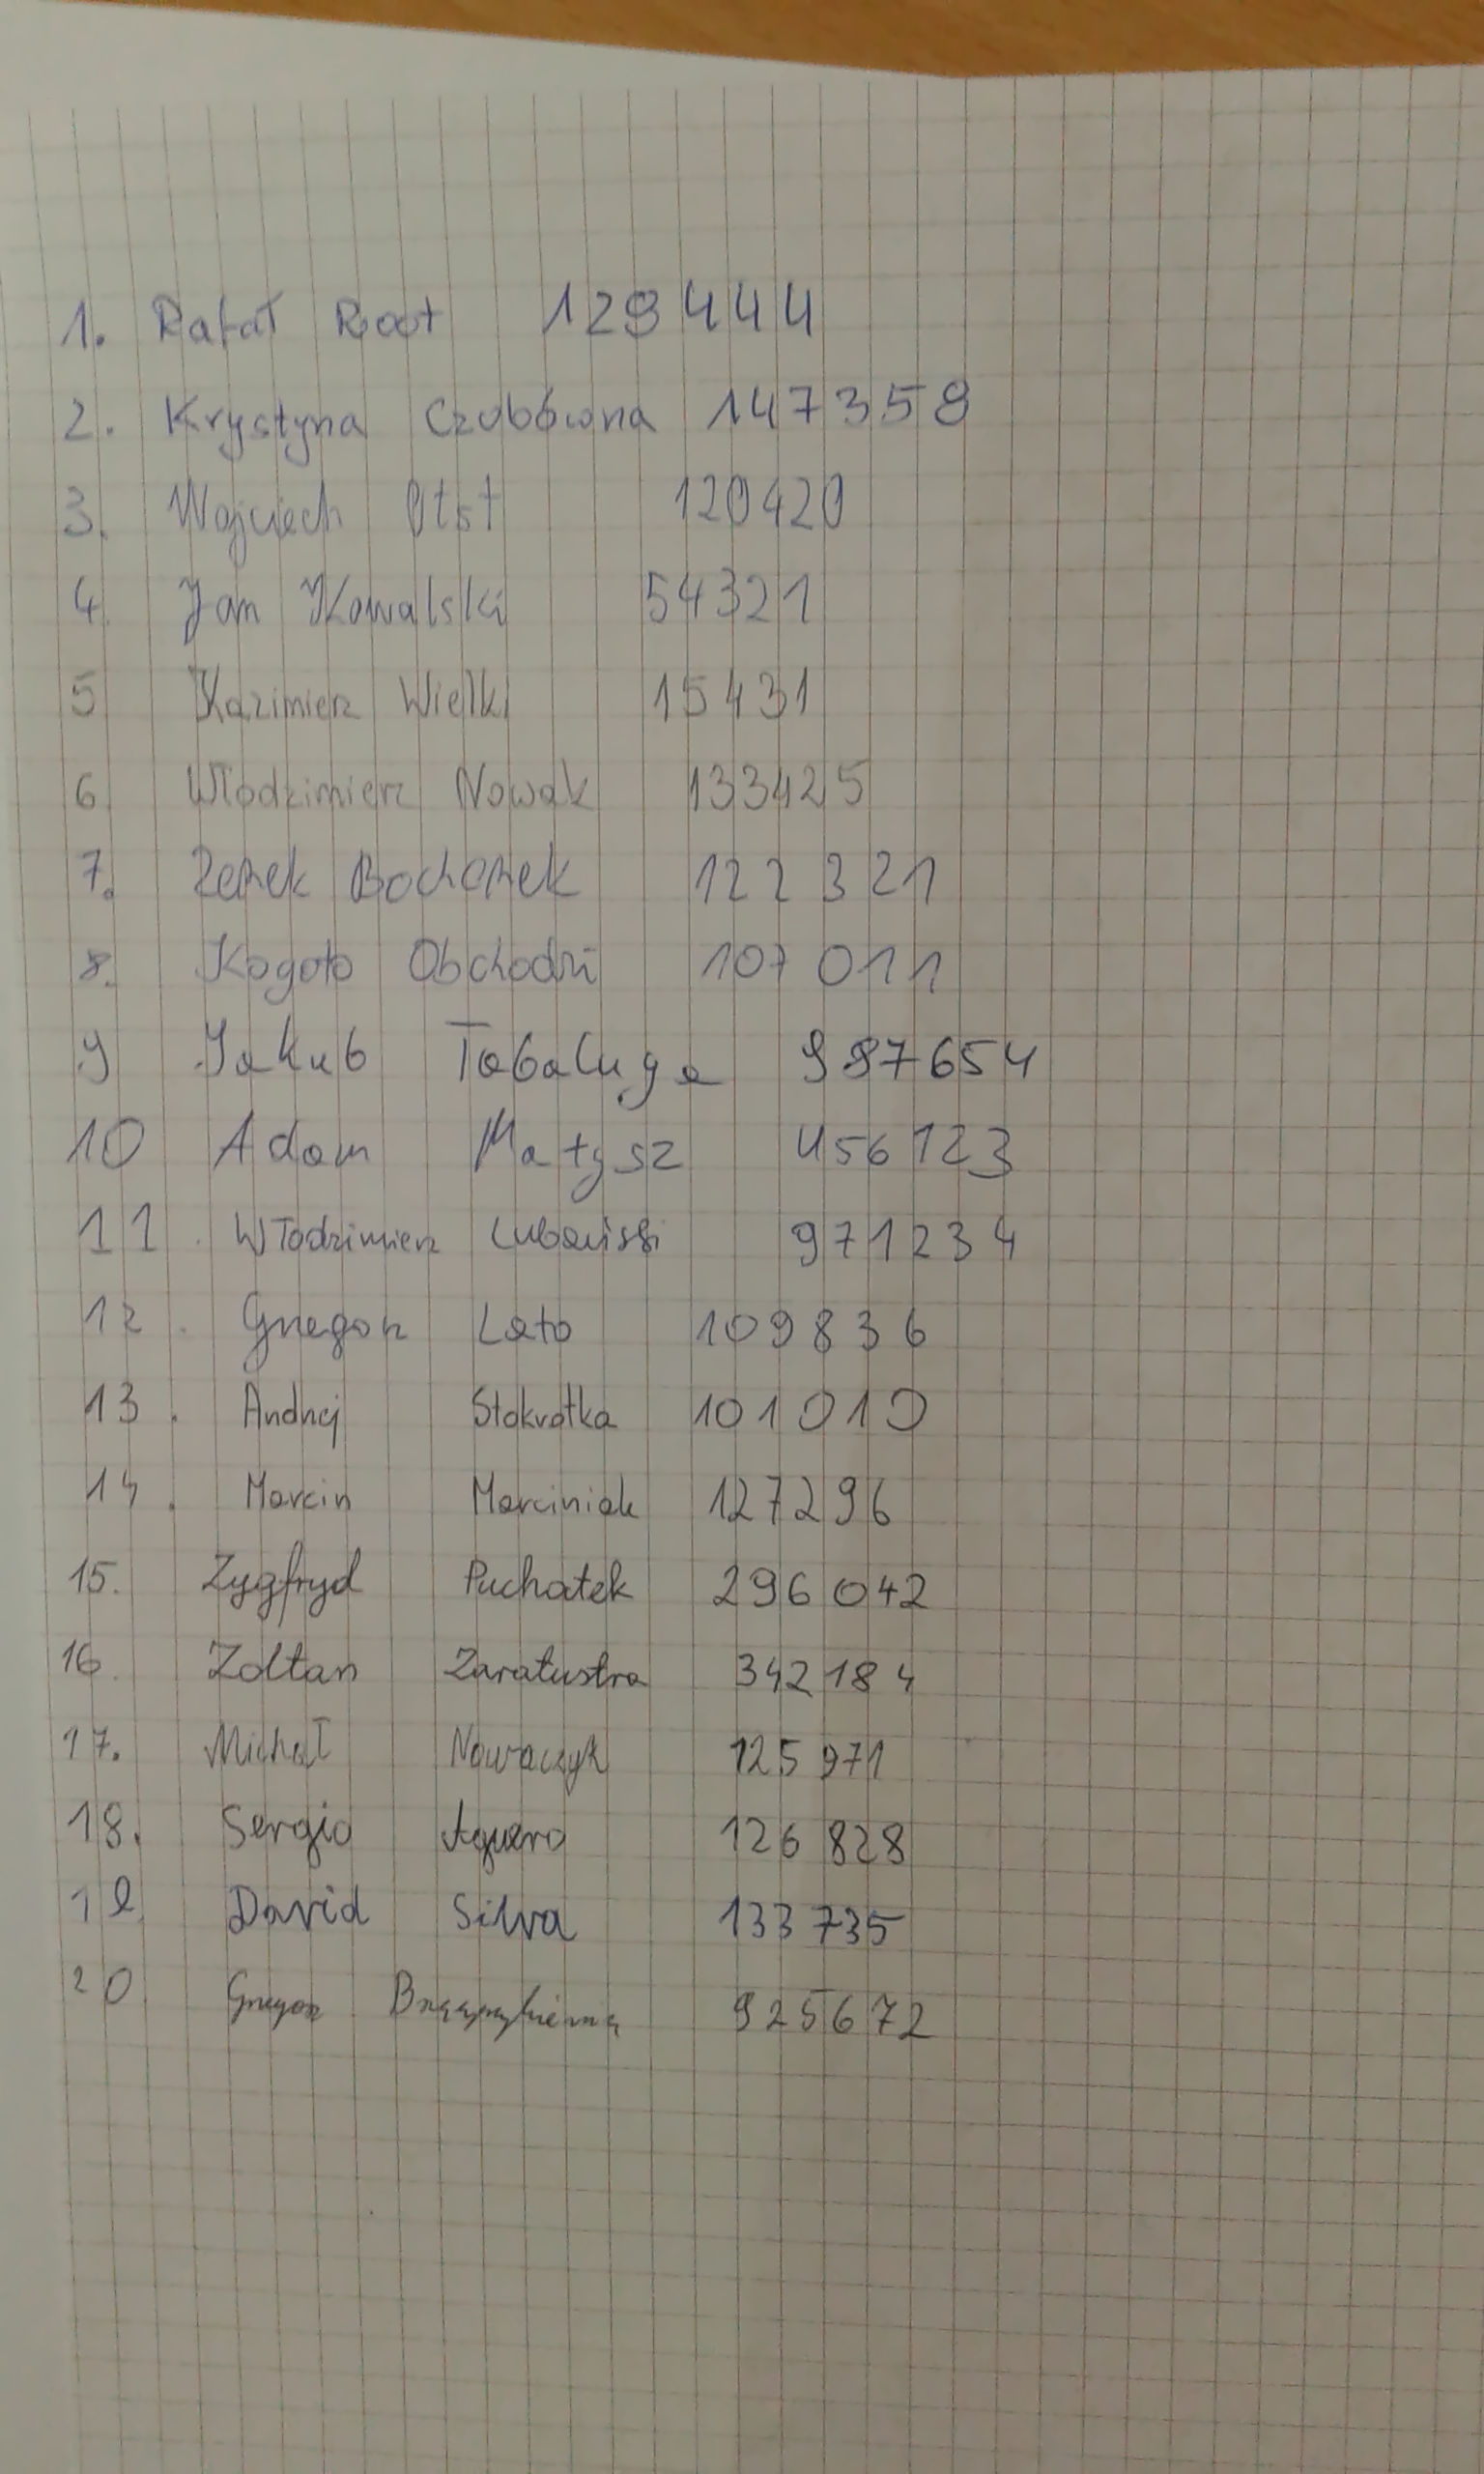 1. Rafał Root 129444
2. Krystyna Czubówna 147359
3. Wojciech Otst 120420
4. Jan Kowalski 54321
5 Kazimierz Wielki 15431
6 Włodzimierz Nowak 133425
7. Zenek Bochenek 122321
8. Kogoto Obchodzi 107011
9 Jakub Tabaluga 987654
10 Adam Małysz 456123
11. Włodzimierz Lubański 971234
12. Grzegorz Lato 109836
13. Andrzej Stokrotka 101010
14. Marcin Marciniak 127296
15. Zygfryd Puchatek 296042
16. Zoltan Zaratustra 342184
17. Michał Nowaczyk 125971
18. Sergio Aguero 126828
19. David Silva 133735
20. Grzegorz 925672